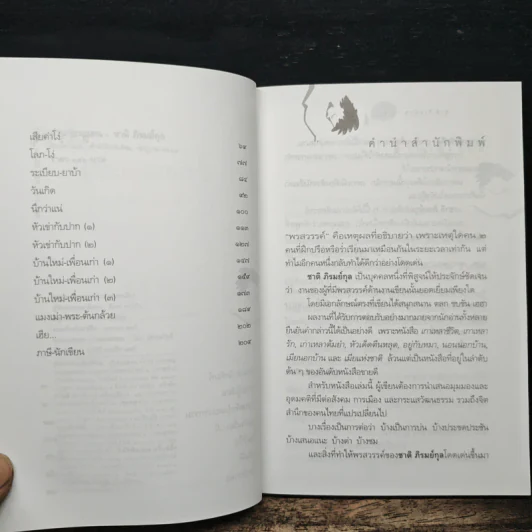 เสียค่าโง่ ๖๕
โลภ-โง่ ๗๗
ระเบียบ-ยาบ้า ๘๔
วันเกิด ๙๒
นึกว่าแน่ ๑๐๐
หัวเข่ากับปาก (๑) ๑๑๓
หัวเข่ากับปาก (๒) ๑๒๗
บ้านใหม่-เพื่อนเก่า (๑)
บ้านใหม่-เพื่อนเก่า (๒)
บ้านใหม่-เพื่อนเก่า (๓)
แมงเม่า-พระ-ต้นกล้วย
เฮีย... ๒๐๒
ภาษี-นักเขียน ๒๑๔
คำนำสำนักพิมพ์
"พรสวรรค์" คือเหตุผลที่อธิบายว่า เพราะเหตุใดคน ๒
คนที่ฝึกปรือหรือร่ำเรียนมาเหมือนกันในระยะเวลาเท่ากัน แต่
ทำไมอีกคนหนึ่งกลับทำได้ดีกว่าอย่างโดดเด่น
ชาติ ภิรมย์กุล เป็นบุคคลหนึ่งที่พิสูจน์ให้ประจักษ์ชัดเจน
ว่า งานของผู้ที่มีพรสวรรค์ด้านงานเขียนนั้นยอดเยี่ยมเพียงใด
โดยมีเอกลักษณ์ตรงที่เขียนได้สนุกสนาน ตลก ขบขัน เฮฮา
ผลงานที่ได้รับการตอบรับอย่างมากมายจากนักอ่านทั้งหลาย
ยืนยันคำกล่าวนี้ได้เป็นอย่างดี เพราะหนังสือ เกาเหลาชีวิต, เกาเหลา
รัก, หัวเด็ดตีนหลุด, อยู่กับหมา, นอนนอกบ้าน,
เมียนอกบ้าน และ เมียแห่งชาติ ล้วนแต่เป็นหนังสือที่อยู่ในลำดับ
ต้นๆ ของอันดับหนังสือขายดี
สำหรับหนังสือเล่มนี้ ผู้เขียนต้องการนำเสนอมุมมองและ
อุดมคติที่มีต่อสังคม การเมือง และกระแสวัฒนธรรม รวมถึงจิต
สำนึกของคนไทยที่แปรเปลี่ยนไป
บางเรื่องเป็นการต่อว่า บ้างเป็นการบ่น บ้างประชดประชัน
บ้างเสนอแนะ บ้างด่า บ้างชม
และสิ่งที่ทำให้พรสวรรค์ของชาติ ภิรมย์กุลโดดเด่นขึ้นมา